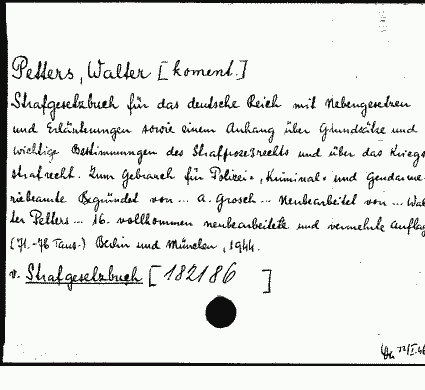 Petters, Walter [koment.]
Strafgesetzbuch für das deutsche Reich mit Nebengesetzen
und Erläuterungen sowie einem Anhang über Grundsätze und
wichtige Bestimmungen des Strafprozeßrechts und über das Kriegs
strafrecht. Zum Gebrauch für Polizei-, Kriminal- und Gendarme-
riebeamte Begründet von ... A. Grosch ... Neubearbeitet von ... Wal
ter Petters ... 16. vollkommen neubearbeitete und vermehrte Auflag
(71.-76 Taus.) Berlin und München, 1944.
v. Strafgesetzbuch [182186 ]